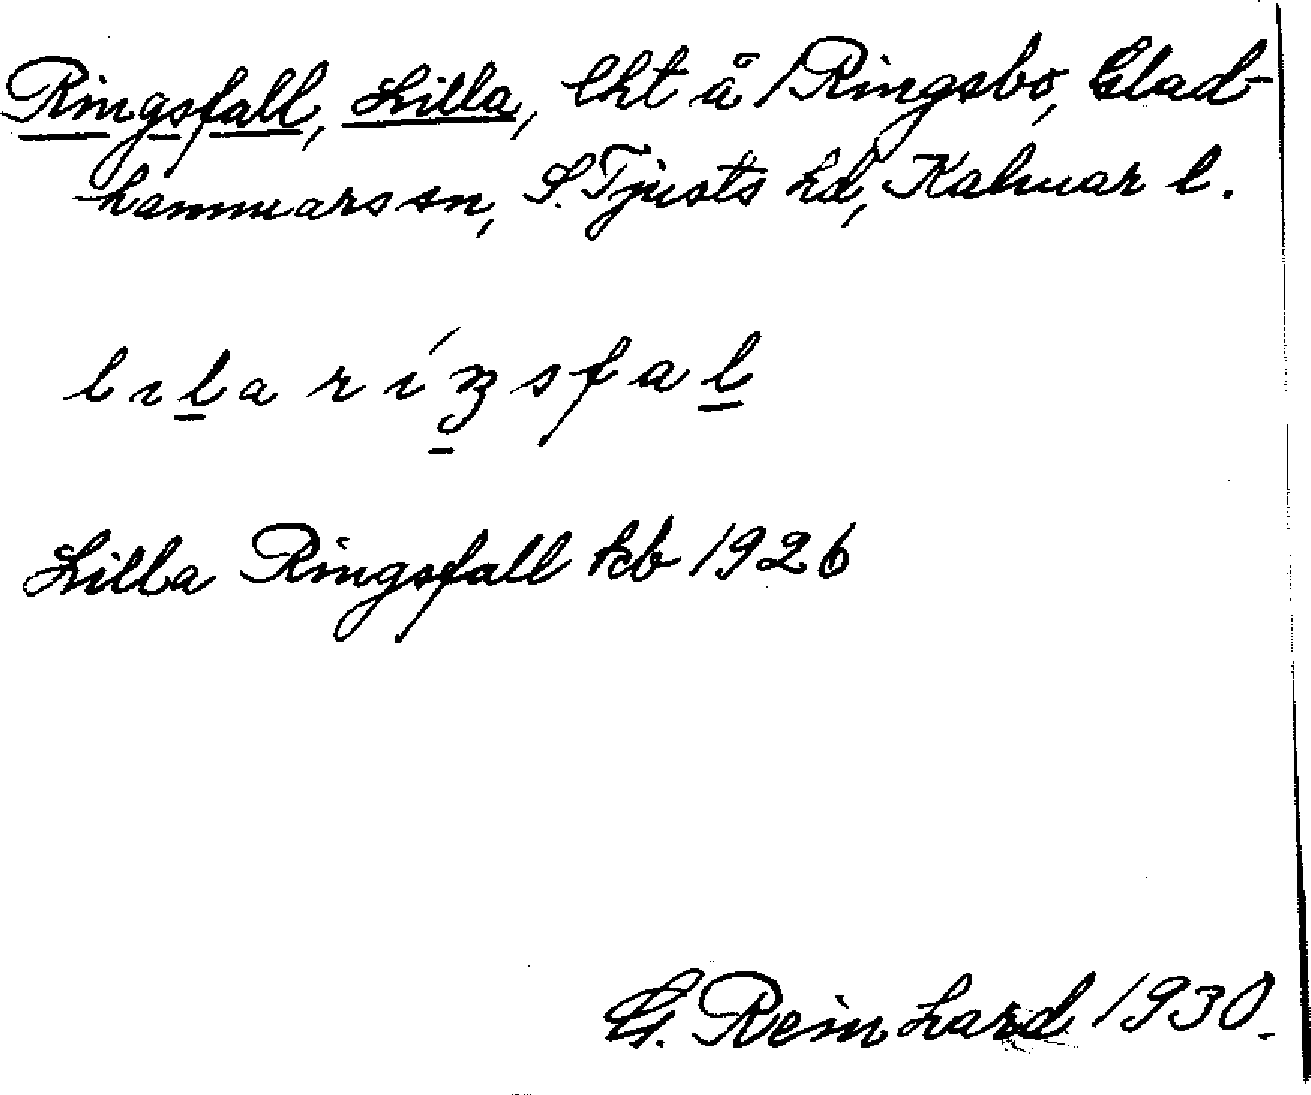 Ringsfall, Lilla, lht å /Ringsbo, Glad-
hammars sn, S. Tjusts hd, Kalmar l.
lıla ríŋsfal
Lilla Ringsfall kb 1926
G. Reinhard 1930.